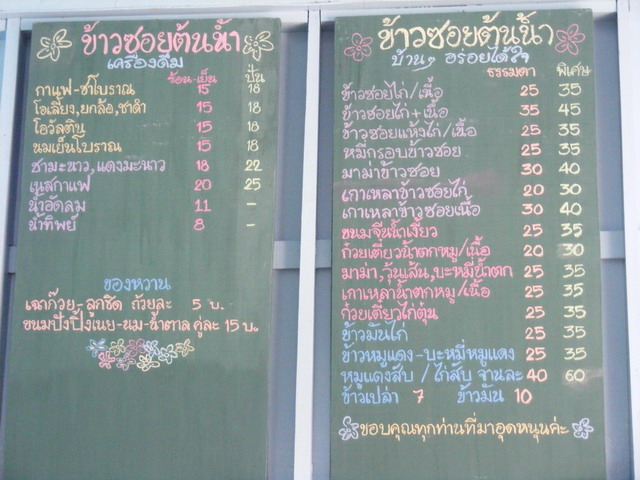 ข้าวซอยต้นน้ำ
เครื่องดื่ม
ร้อน-เย็น ปั่น
กาแฟ-ชาโบราณ 15 18
โอเลี้ยง,ยกล้อ,ชาดำ 15 18
โอวัลติน 15 18
นมเย็นโบราณ 15 18
ชามะนาว,แดงมะนาว 18 22
เนสกาแฟ 20 25
น้ำอัดลม 11 -
น้ำทิพย์ 8 -
ของหวาน
เฉาก๊วย-ลูกชิด ถ้วยละ 5 บ.
ขนมปังปิ้งเนย-นม-น้ำตาล คู่ละ 15 บ.
ข้าวซอยต้นน้ำ
บ้านๆ อร่อยได้ใจ
ธรรมดา พิเศษ
ข้าวซอยไก่/เนื้อ 25 35
ข้าวซอยไก่+เนื้อ 35 45
ข้าวซอยแห้งไก่/เนื้อ 25 35
หมี่กรอบข้าวซอย 25 35
มาม่าข้าวซอย 30 40
เกาเหลาข้าวซอยไก่ 20 30
เกาเหลาข้าวซอยเนื้อ 30 40
ขนมจีนน้ำเงี้ยว 25 35
ก๋วยเตี๋ยวน้ำตกหมู/เนื้อ 20 30
มาม่า,วุ้นเส้น,บะหมี่น้ำตก 25 35
เกาเหลาน้ำตกหมู/เนื้อ 25 35
ก๋วยเตี๋ยวไก่ตุ๋น 25 35
ข้าวมันไก่ 25 35
ข้าวหมูแดง-บะหมี่หมูแดง 25 35
หมูแดงสับ / ไก่สับ จานละ 40 60
ข้าวเปล่า 7 ข้าวมัน 10
ขอบคุณทุกท่านที่มาอุดหนุนค่ะ